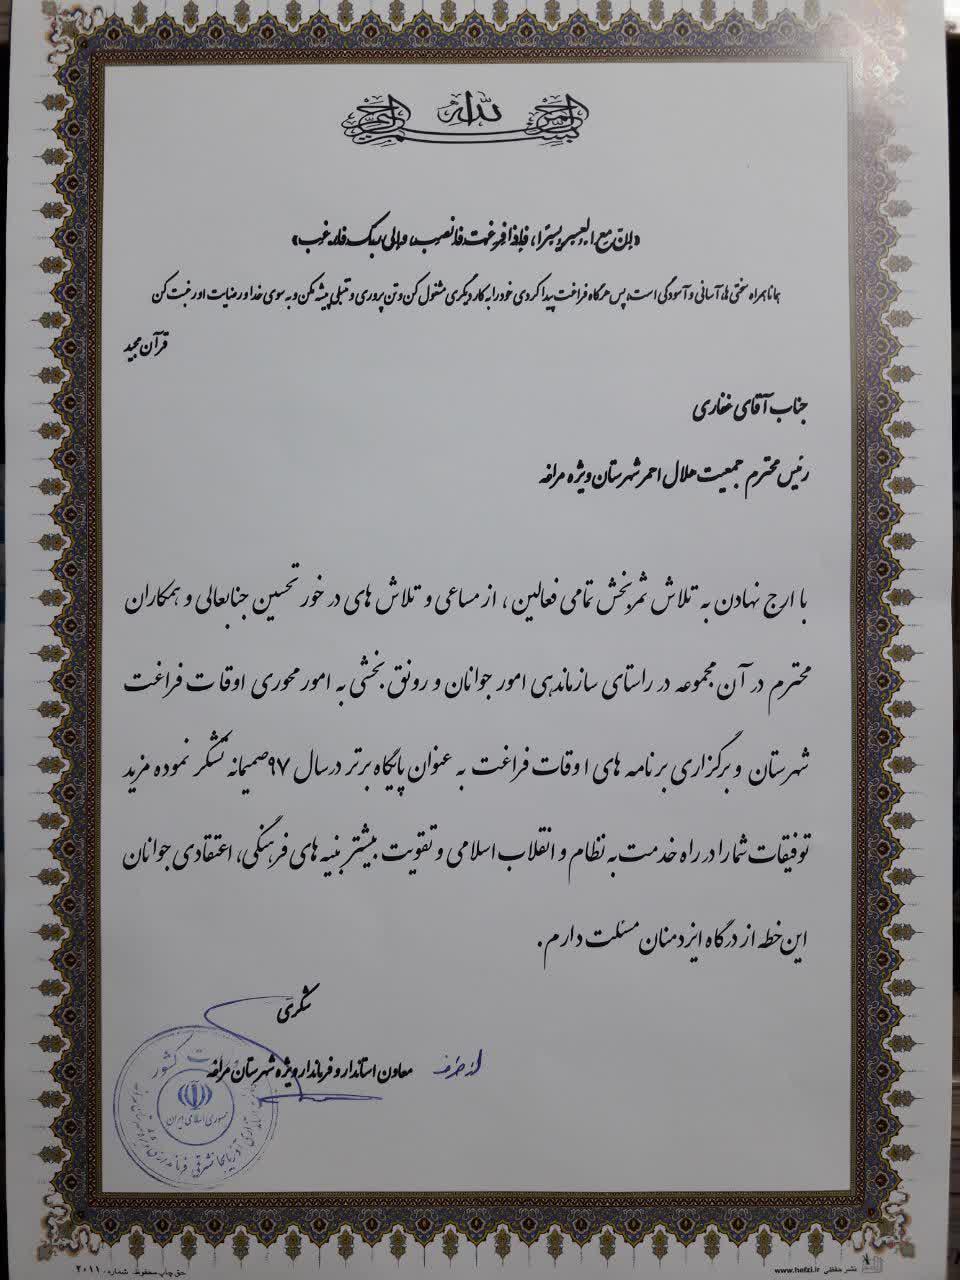 بسم الله الرحمن الرحیم
«ان مع العسر یسرا، فاذا فرغت فانصب، و الی ربک فارغب»
همانا همراه سختی ها آسانی و آسودگی است، پس هرگاه فراغت پیدا کردی خود را به کار دیگری مشغول کن و تن پروری و تنبلی پیشه مکن و به سوی خدا و رضایت او رغبت کن
قرآن مجید
جناب آقای غفاری
رئیس محترم جمعیت هلال احمر شهرستان ویژه مراغه
با ارج نهادن به تلاش ثمربخش تمامی فعالین، از مساعی و تلاش های در خور تحسین جنابعالی و همکاران
محترم در آن مجموعه در راستای سازماندهی امور جوانان و رونق بخشی به امور محوری اوقات فراغت
شهرستان و برگزاری برنامه های اوقات فراغت به عنوان پایگاه برتر در سال ۹۷ صمیمانه تشکر نموده مزید
توفیقات شما را در راه خدمت به نظام و انقلاب اسلامی و تقویت بیشتر بنیه های فرهنگی، اعتقادی جوانان
این خطه از درگاه ایزد منان مسئلت دارم.
شکری
از طرف معاون استاندار و فرماندار ویژه شهرستان مراغه
کشور
جمهوری اسلامی ایران
آذربایجانشرقی
حق چاپ محفوظ. شماره: ۲۰۱۱
نشر حفظی www.hefzi.ir